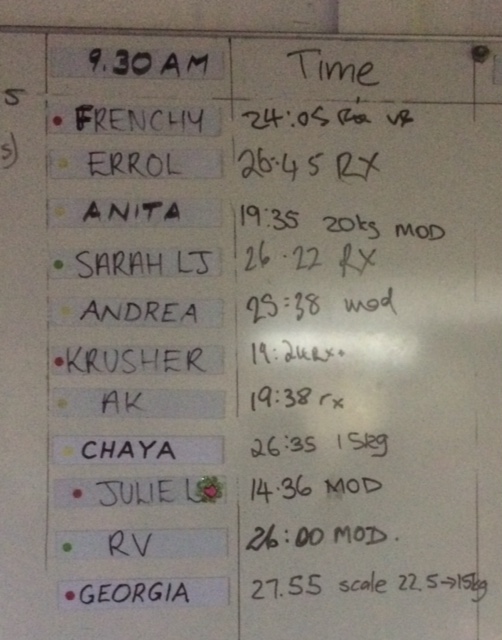 9.30 AM Time
5
FRENCHY 24:05
s)
ERROL 26.45 RX
ANITA 19:35 20kg MOD
SARAH LJ 26.22 RX
ANDREA 25:38 mod
KRUSHER 19:24 RX+
AK 19:38 rx
CHAYA 26:35 15kg
JULIE L 14.36 MOD
RV 26:00 MOD.
GEORGIA 27.55 scale 22.5→15kg